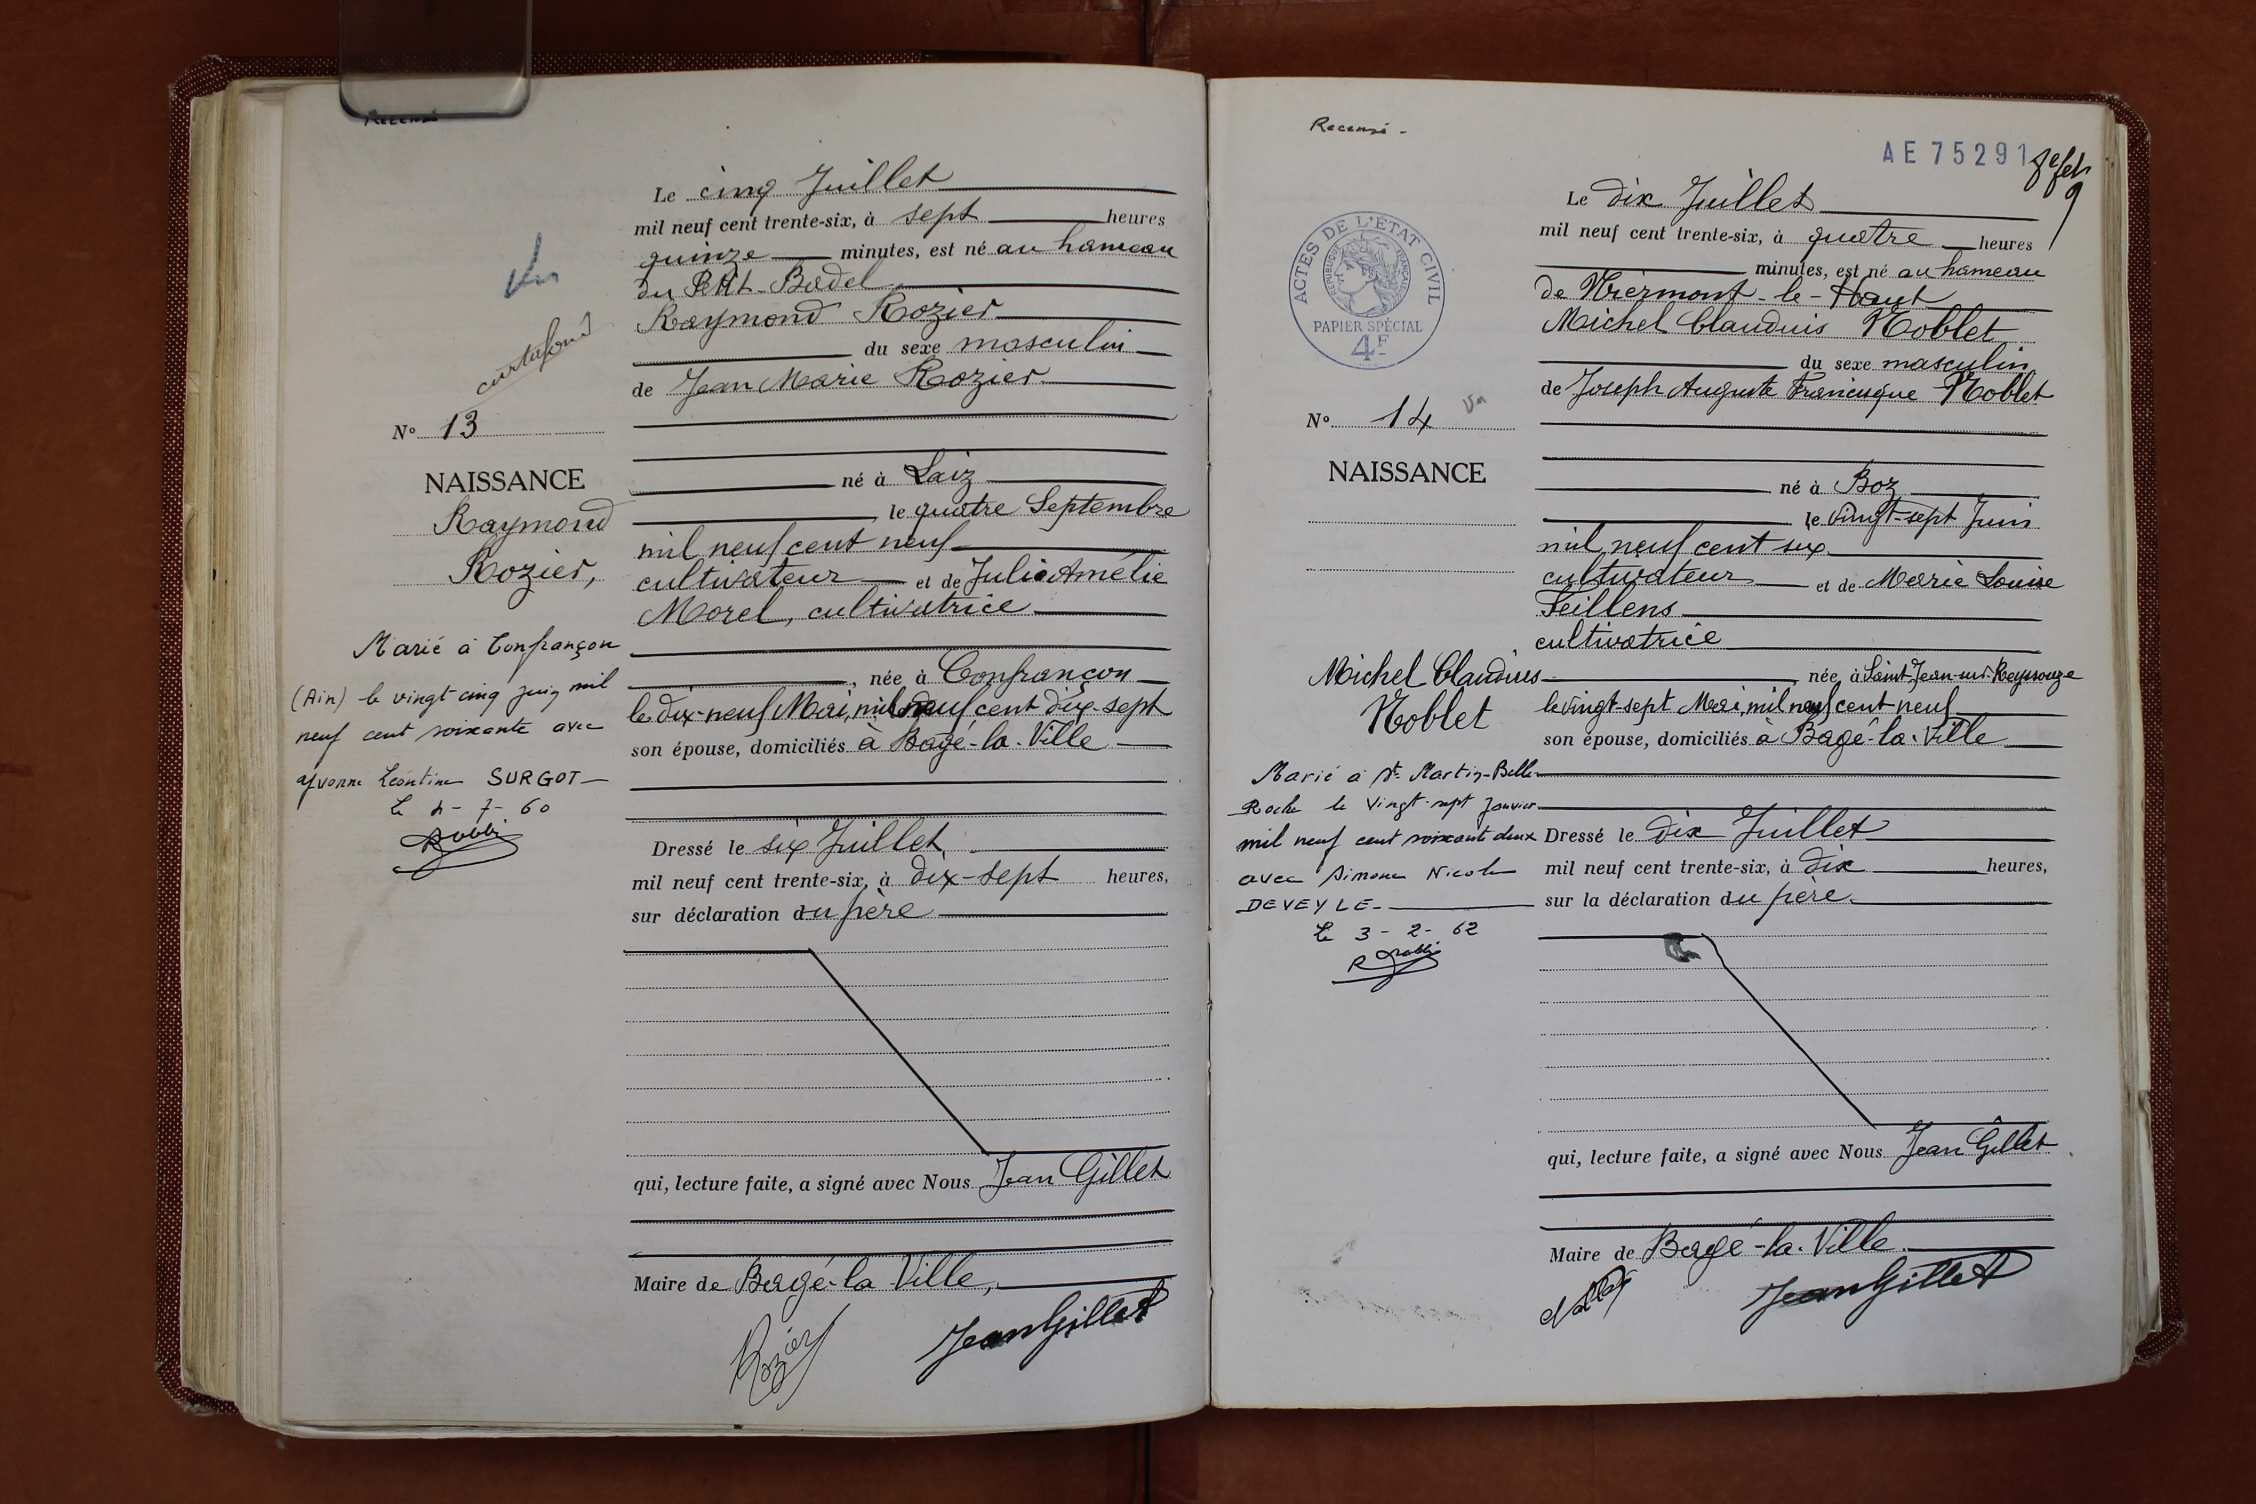 Recensé
Le cinq Juillet
mil neuf cent trente-six, à sept heures
quinze minutes, est né au hameau
du Petit-Badel
Raymond Rozier
du sexe masculin
de Jean Marie Rozier
curtafond
N° 13
NAISSANCE
Raymond
Rozier,
né à Laiz
le quatre Septembre
mil neuf cent neuf
cultivateur et de Julie Amélie
Morel, cultivatrice
née à Confrançon
le dix-neuf Mai, mil neuf cent dix-sept
son épouse, domiciliés à Bagé-la-Ville
Marié à Confrançon
(Ain) le vingt cinq juin mil
neuf cent soixante avec
Yvonne Léontine SURGOT
Le 4-7-60
Dressé le six Juillet
mil neuf cent trente-six, à dix-sept heures,
sur déclaration du père
qui, lecture faite, a signé avec Nous Jean Gillet
Maire de Bagé-la-Ville,
Rozier
Jean Gillet
Recensé -
AE 75291
ACTES DE L'ÉTAT CIVIL
RÉPUBLIQUE FRANÇAISE
PAPIER SPÉCIAL
4F
Le dix Juillet
mil neuf cent trente-six, à quatre heures
minutes, est né au hameau
de Miermont-le-Haut
Michel Claudius Noblet
du sexe masculin
de Joseph Auguste Francisque Noblet
N° 14 Vu
NAISSANCE
Michel Claudius
Noblet
né à Boz
le vingt-sept Juin
mil neuf cent six
cultivateur et de Marie Louise
Feillens
cultivatrice
née à Saint-Jean-sur-Reyssouze
le vingt-sept Mai, mil neuf cent neuf
son épouse, domiciliés à Bagé-la-Ville
Marié à St-Martin-Belle
Roche le vingt-sept Janvier
mil neuf cent soixante deux
avec Simone Nicole
DEVEYLE
Le 3-2-62
Dressé le dix Juillet
mil neuf cent trente-six, à dix heures,
sur la déclaration du père.
qui, lecture faite, a signé avec Nous Jean Gillet
Maire de Bagé-la-Ville
Jean Gillet